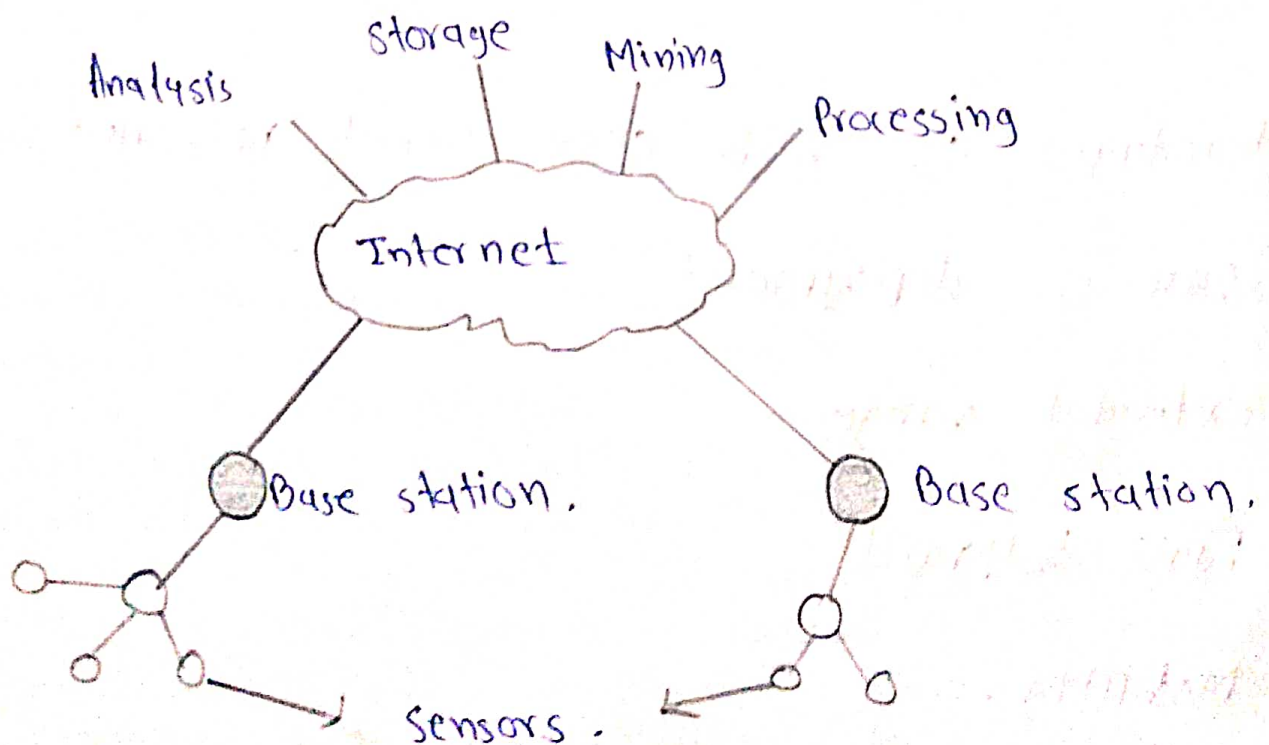 Analysis
storage
Mining
Processing
Internet
Base station.
Base station.
sensors.